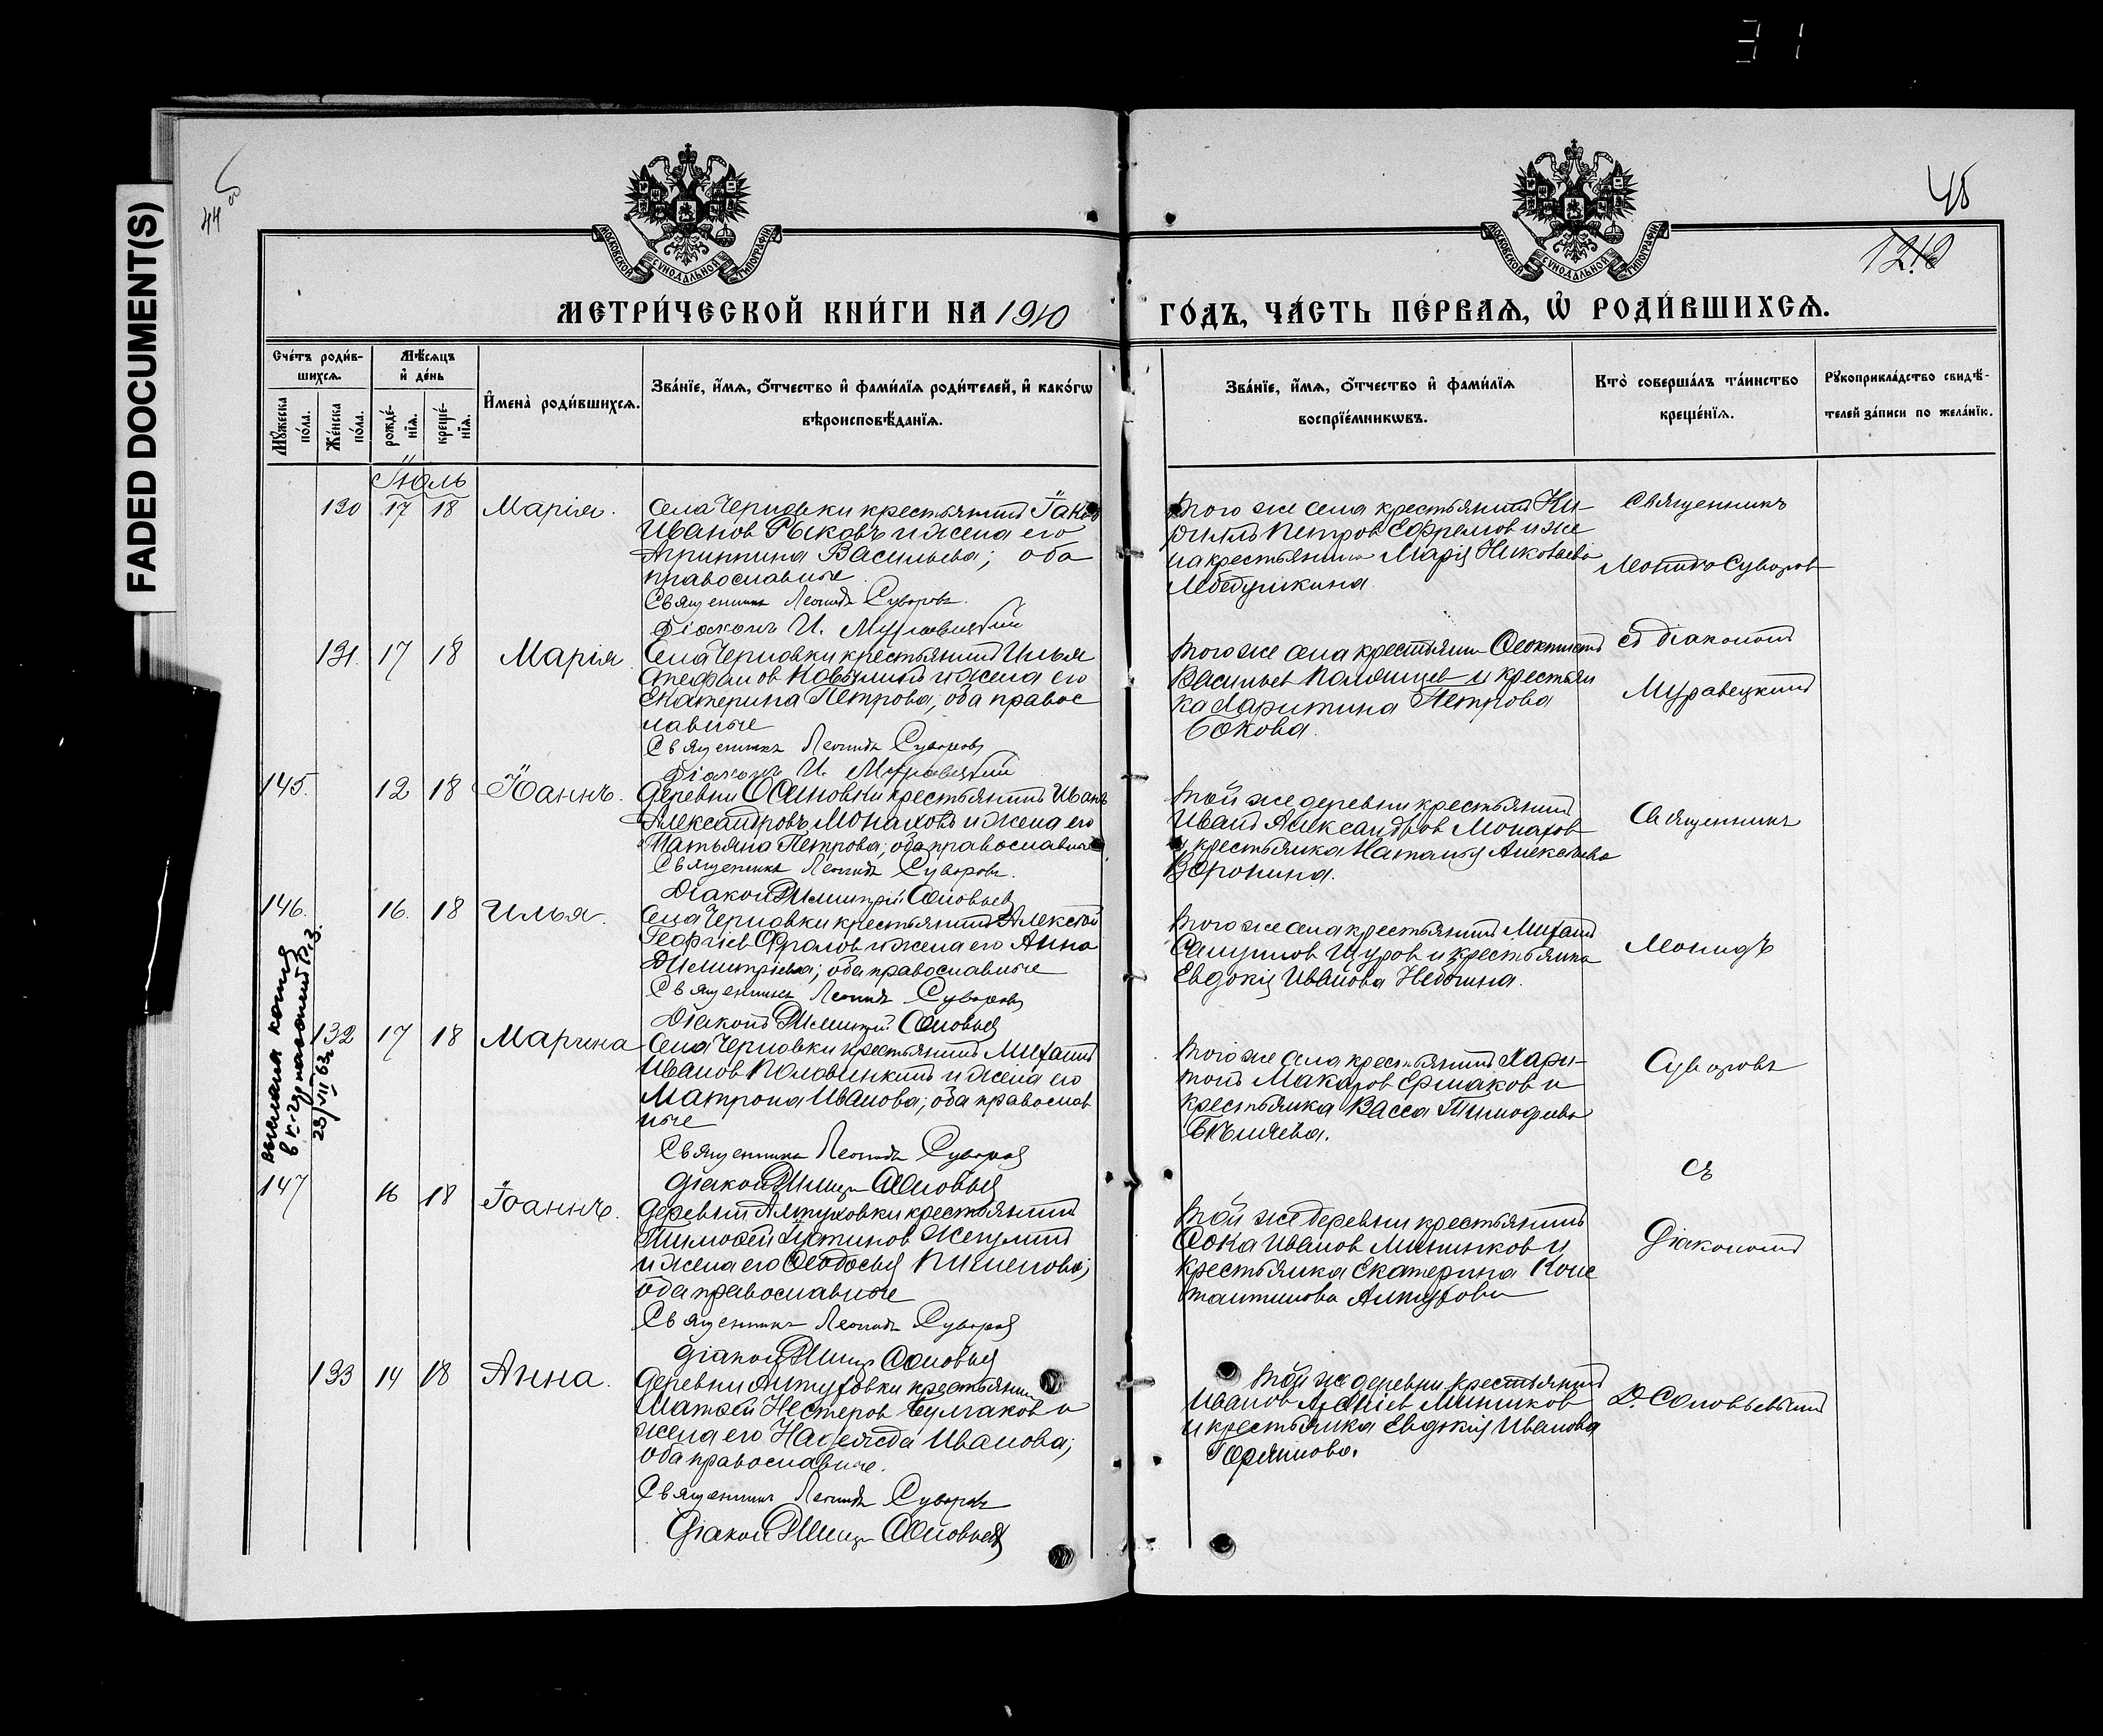 31
FADED DOCUMENT(S)
44 об
45
1212
МОСКОВСКОЙ СУНОДАЛЬНОЙ ТИПОГРАФІИ
МОСКОВСКОЙ СУНОДАЛЬНОЙ ТИПОГРАФІИ
МЕТРИ́ЧЕСКОЙ КНИ́ГИ НА 1910
ГО́ДЪ, ЧА́СТЬ ПЕ́РВАѦ, Ѡ҆ РОДИ́ВШИХСѦ.
Сче́тъ роди́в-
шихсѧ.
Мꙋ́жеска по́ла.
Же́нска по́ла.
Мѣ́сѧцъ
и҆ де́нь
рожде́-
нїѧ.
креще́-
нїѧ.
И҆мена̀ роди́вшихсѧ.
Зва́нїе, и҆́мѧ, ѻ҆́тчество и҆ фами́лїѧ роди́телей, и҆ како́гѡ
вѣроисповѣ́данїѧ.
Зва́нїе, и҆́мѧ, ѻ҆́тчество и҆ фами́лїѧ
воспрїе́мникѡвъ.
Кто̀ соверша́лъ та́инство
креще́нїѧ.
Рꙋкоприкла́дство свидѣ́-
телей за́писи по жела́нїю.
Іюль
130 17 18 Марія.
Села Черновки крестьянинъ Іаковъ
Иванов Рыковъ и жена его
Агриппина Васильева; оба
православные
Священникъ Леонидъ Суворовъ.
Діаконъ И. Муравецкій
Того же села крестьянинъ Ки-
риллъ Петров Ефремов и же
на крестьянина Марія Николаева
Лебедушкина.
Священникъ
Леонидъ Суворов
131. 17 18 Марія
Села Черновки крестьянинъ Илья
Стефанов и жена его
Екатерина Петрова, оба правос
лавные
Священникъ Леонидъ Суворовъ
Діаконъ И. Муравецкій
Того же села крестьянин Феоктистъ
Васильев и крестьян
ка Харитина Петрова
Бокова.
съ діакономъ
Муравецкимъ
145. 12 18 Іоаннъ.
Деревни Осиновки крестьянинъ Иванъ
Александровъ Монаховъ и жена его
Татьяна Петрова; оба православные
Священникъ Леонидъ Суворовъ.
Діаконъ Димитрій Соловьев
Той же деревни крестьянинъ
Иванъ Александров Монахов
и крестьянка Наталья Алексѣева
Воронина.
Священникъ
146. 16. 18 Илья.
Села Черновки крестьянинъ Алексѣй
Георгіев Фролов и жена его Анна
Димитріева; оба православные
Священникъ Леонидъ Суворовъ
Діаконъ Димитрій Соловьев
Того же села крестьянинъ Михаилъ
Самуилов Щуров и крестьянка
Евдокія Иванова
Леонидъ
выслана копия
23/VII 63г
132 17 18 Марина
Села Черновки крестьянинъ Михаилъ
Иванов Половинкинъ и жена его
Матрона Иванова; оба православ
ные
Священникъ Леонидъ Суворов
Діаконъ Димитр Соловьев
Того же села крестьянинъ Хари-
тонъ Макаров Ермаков и
крестьянка Васса Тимофеева
Суворовъ
съ
147 16 18 Іоаннъ.
Деревни Алтуховки крестьянинъ
Тимофей Устинов
и жена его Феодосья Пименова;
оба православные
Священникъ Леонидъ Суворов
Діаконъ Димитр Соловьев
Той же деревни крестьянинъ
Фока Иванов Мишинков и
крестьянка Екатерина Конс
тантинова Алтухова
Діакономъ
133 14 18 Анна.
Деревни Алтуховки крестьянин
Матфей Нестеров Булгаков и
жена его Надежда Иванова;
оба православные.
Священникъ Леонидъ Суворовъ
Діаконъ Димитр Соловьев
Той же деревни крестьянинъ
Иванов
и крестьянка Евдокія Иванова
Горяинова.
Д. Соловьевымъ